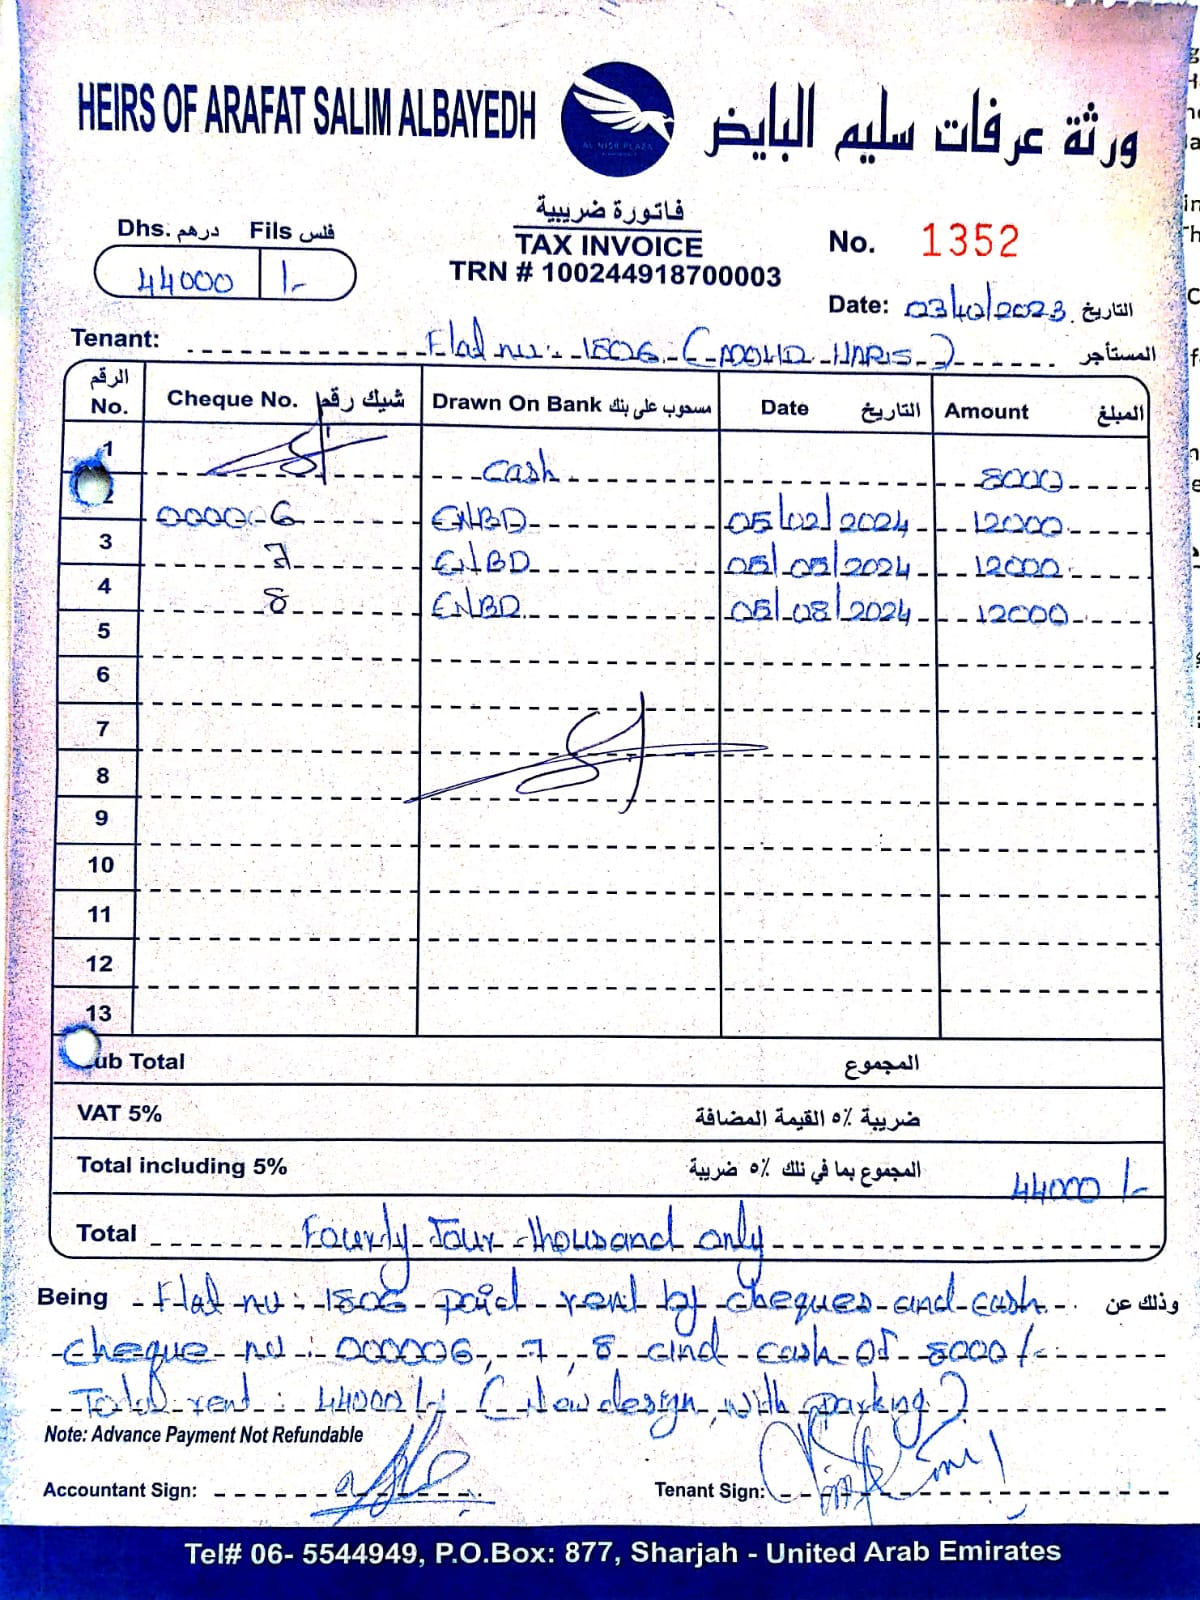 HEIRS OF ARAFAT SALIM ALBAYEDH
ورثة عرفات سليم البايض
AL NISR PLAZA
Dhs. درهم Fils فلس
44000 /-
فاتورة ضريبية
TAX INVOICE
TRN # 100244918700003
No. 1352
Date: 03/10/2023 التاريخ
Tenant: Flat no: 1806 ( HARIS ) المستأجر
الرقم No. Cheque No. شيك رقم Drawn On Bank مسحوب على بنك Date التاريخ Amount المبلغ
1 Cash 8000
2 000006 ENBD 05/02/2024 12000
3 7 ENBD 05/05/2024 12000
4 8 ENBD 05/08/2024 12000
5
6
7
8
9
10
11
12
13
Sub Total المجموع
VAT 5% ضريبة ٥٪ القيمة المضافة
Total including 5% المجموع بما في ذلك ٥٪ ضريبة 44000 /-
Total Fourty four thousand only
Being Flat no: 1806 paid rent by cheques and cash وذلك عن
cheque no: 000006, 7, 8 and cash of 8000/-
Total rent: 44000/- (New design, with parking)
Note: Advance Payment Not Refundable
Accountant Sign: Tenant Sign:
Tel# 06- 5544949, P.O.Box: 877, Sharjah - United Arab Emirates